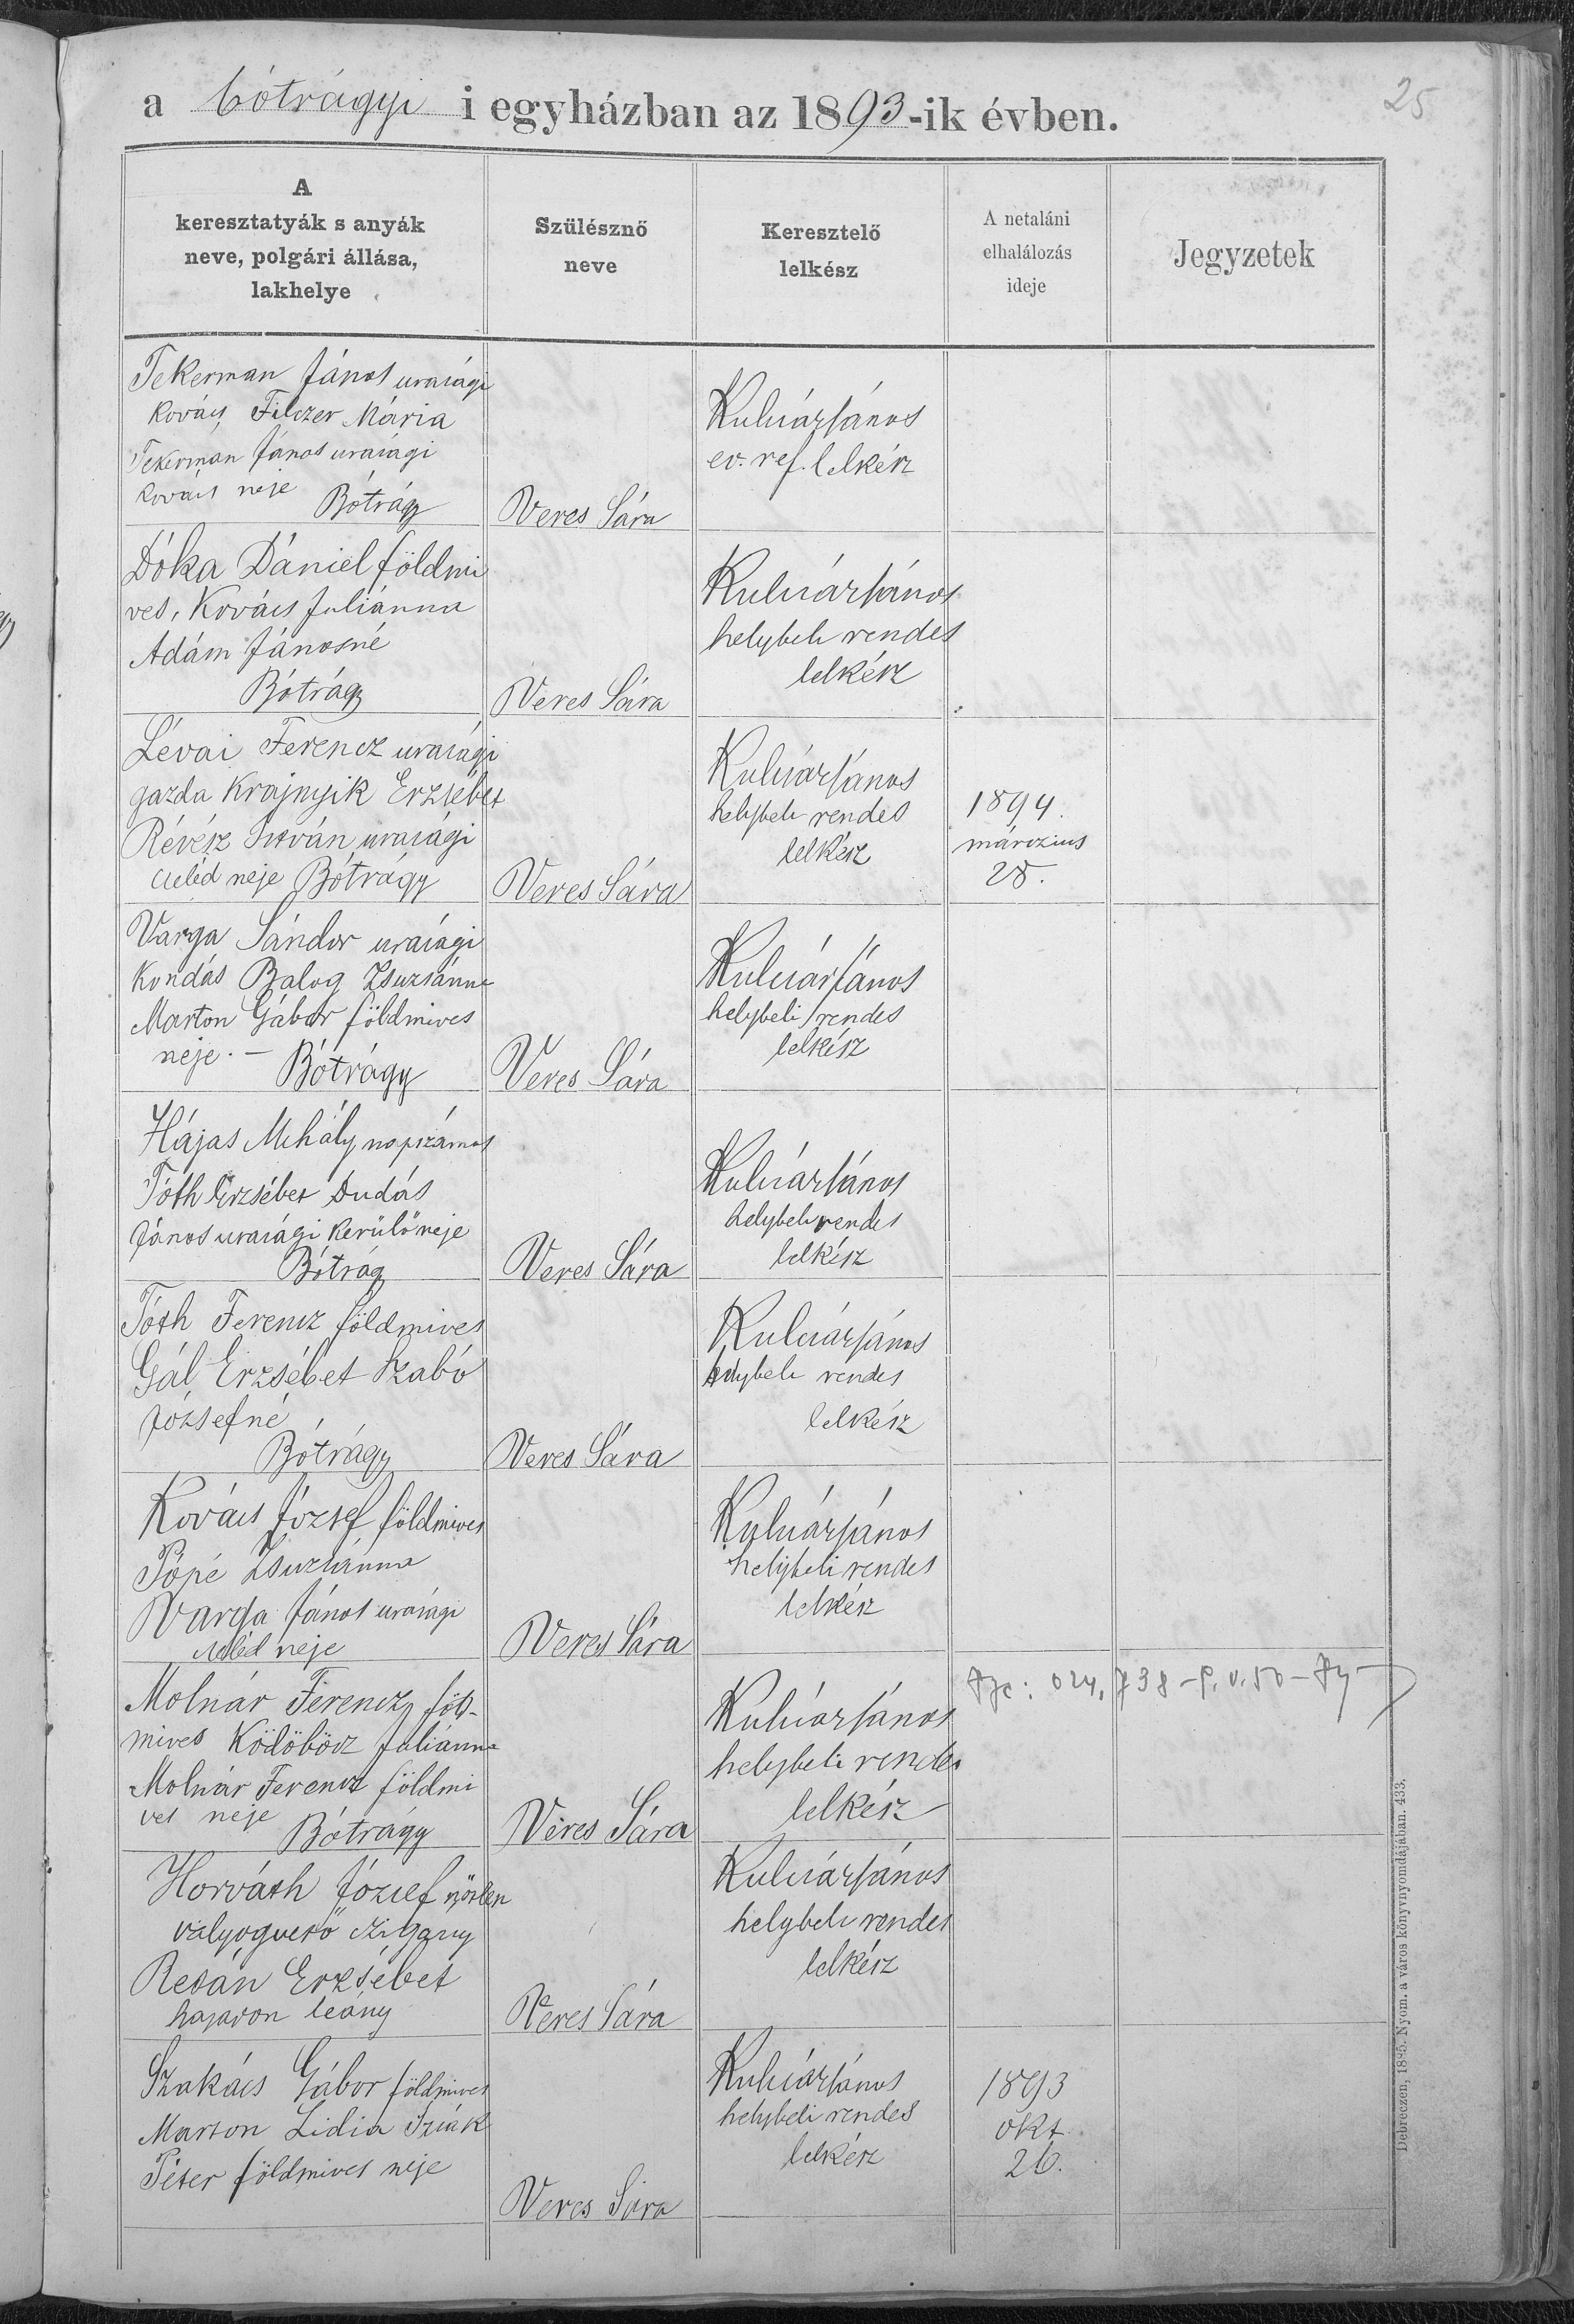 25
a bótrágyi i egyházban az 1893-ik évben.
A
keresztatyák s anyák
neve, polgári állása,
lakhelye
Szülésznő
neve
Keresztelő
lelkész
A netaláni
elhalálozás
ideje
Jegyzetek
Tekerman János urasági
kovács, Filczer Mária
Tekerman János urasági
kovács neje Bótrágy
Veres Sára
Kulcsár János
ev. ref. lelkész
Dóka Dániel földmi
ves, Kovács Juliánna
Adám Jánosné
Bótrágy
Veres Sára
Kulcsár János
helybeli rendes
lelkész
Lévai Ferencz urasági
gazda Krajnyik Erzsébet
Révész István urasági
cseléd neje Bótrágy
Veres Sára
Kulcsár János
helybeli rendes
lelkész
1894.
márczius
28.
Varga Sándor urasági
Kondás Balog Zsuzsánna
Marton Gábor földmives
neje. — Bótrágy
Veres Sára
Kulcsár János
helybeli rendes
lelkész
Hájas Mihály napszámos
Tóth Erzsébet Dudás
János urasági kerülő neje
Bótrágy
Veres Sára
Kulcsár János
helybeli rendes
lelkész
Tóth Ferencz földmives
Gál Erzsébet Szabó
Józsefné
Bótrágy
Veres Sára
Kulcsár János
helybeli rendes
lelkész
Kovács József földmives
Pópé Zsuzsánna
Varga János urasági
cseléd neje
Veres Sára
Kulcsár János
helybeli rendes
lelkész
Molnár Ferencz föld-
mives Ködöböcz Juliánna
Molnár Ferencz földmi
ves neje Bótrágy
Veres Sára
Kulcsár János
helybeli rendes
lelkész
Horváth József nőtlen
vályogvető czigány
Resán Erzsébet
hajadon leány
Veres Sára
Kulcsár János
helybeli rendes
lelkész
Szakács Gábor földmives
Marton Lidia Iziák
Péter földmives neje
Veres Sára
Kulcsár János
helybeli rendes
lelkész
1893
okt.
26.
Debreczen, 1885. Nyom. a város könyvnyomdájában. 433.